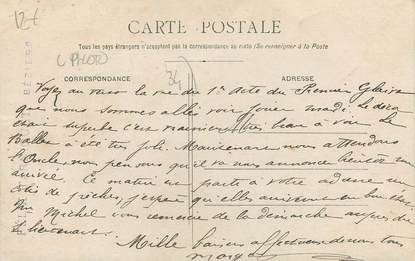 12€
(PHOTO)
34
CARTE POSTALE
Tous les pays étrangers n'acceptent pas la correspondance au recto (Se renseigner à la Poste)
CORRESPONDANCE
ADRESSE
Voyez au verso la vue du 1er acte du Premier Glaive
que nous sommes allés voir jouer mardi. Le décor
était superbe c'est vraiment très beau à voir. Le
Ballet a été très joli. Maintenant nous attendons
l'Oncle, nous pensons qu'il va nous annoncer bientôt son
arrivée. Ce matin est parti à votre adresse un
colis de pêches, j'espère qu'elles arriveront en bon état
Mr Michel vous remercie de la démarche auprès du
Lieutenant.
Mille baisers affectueux de nous tous